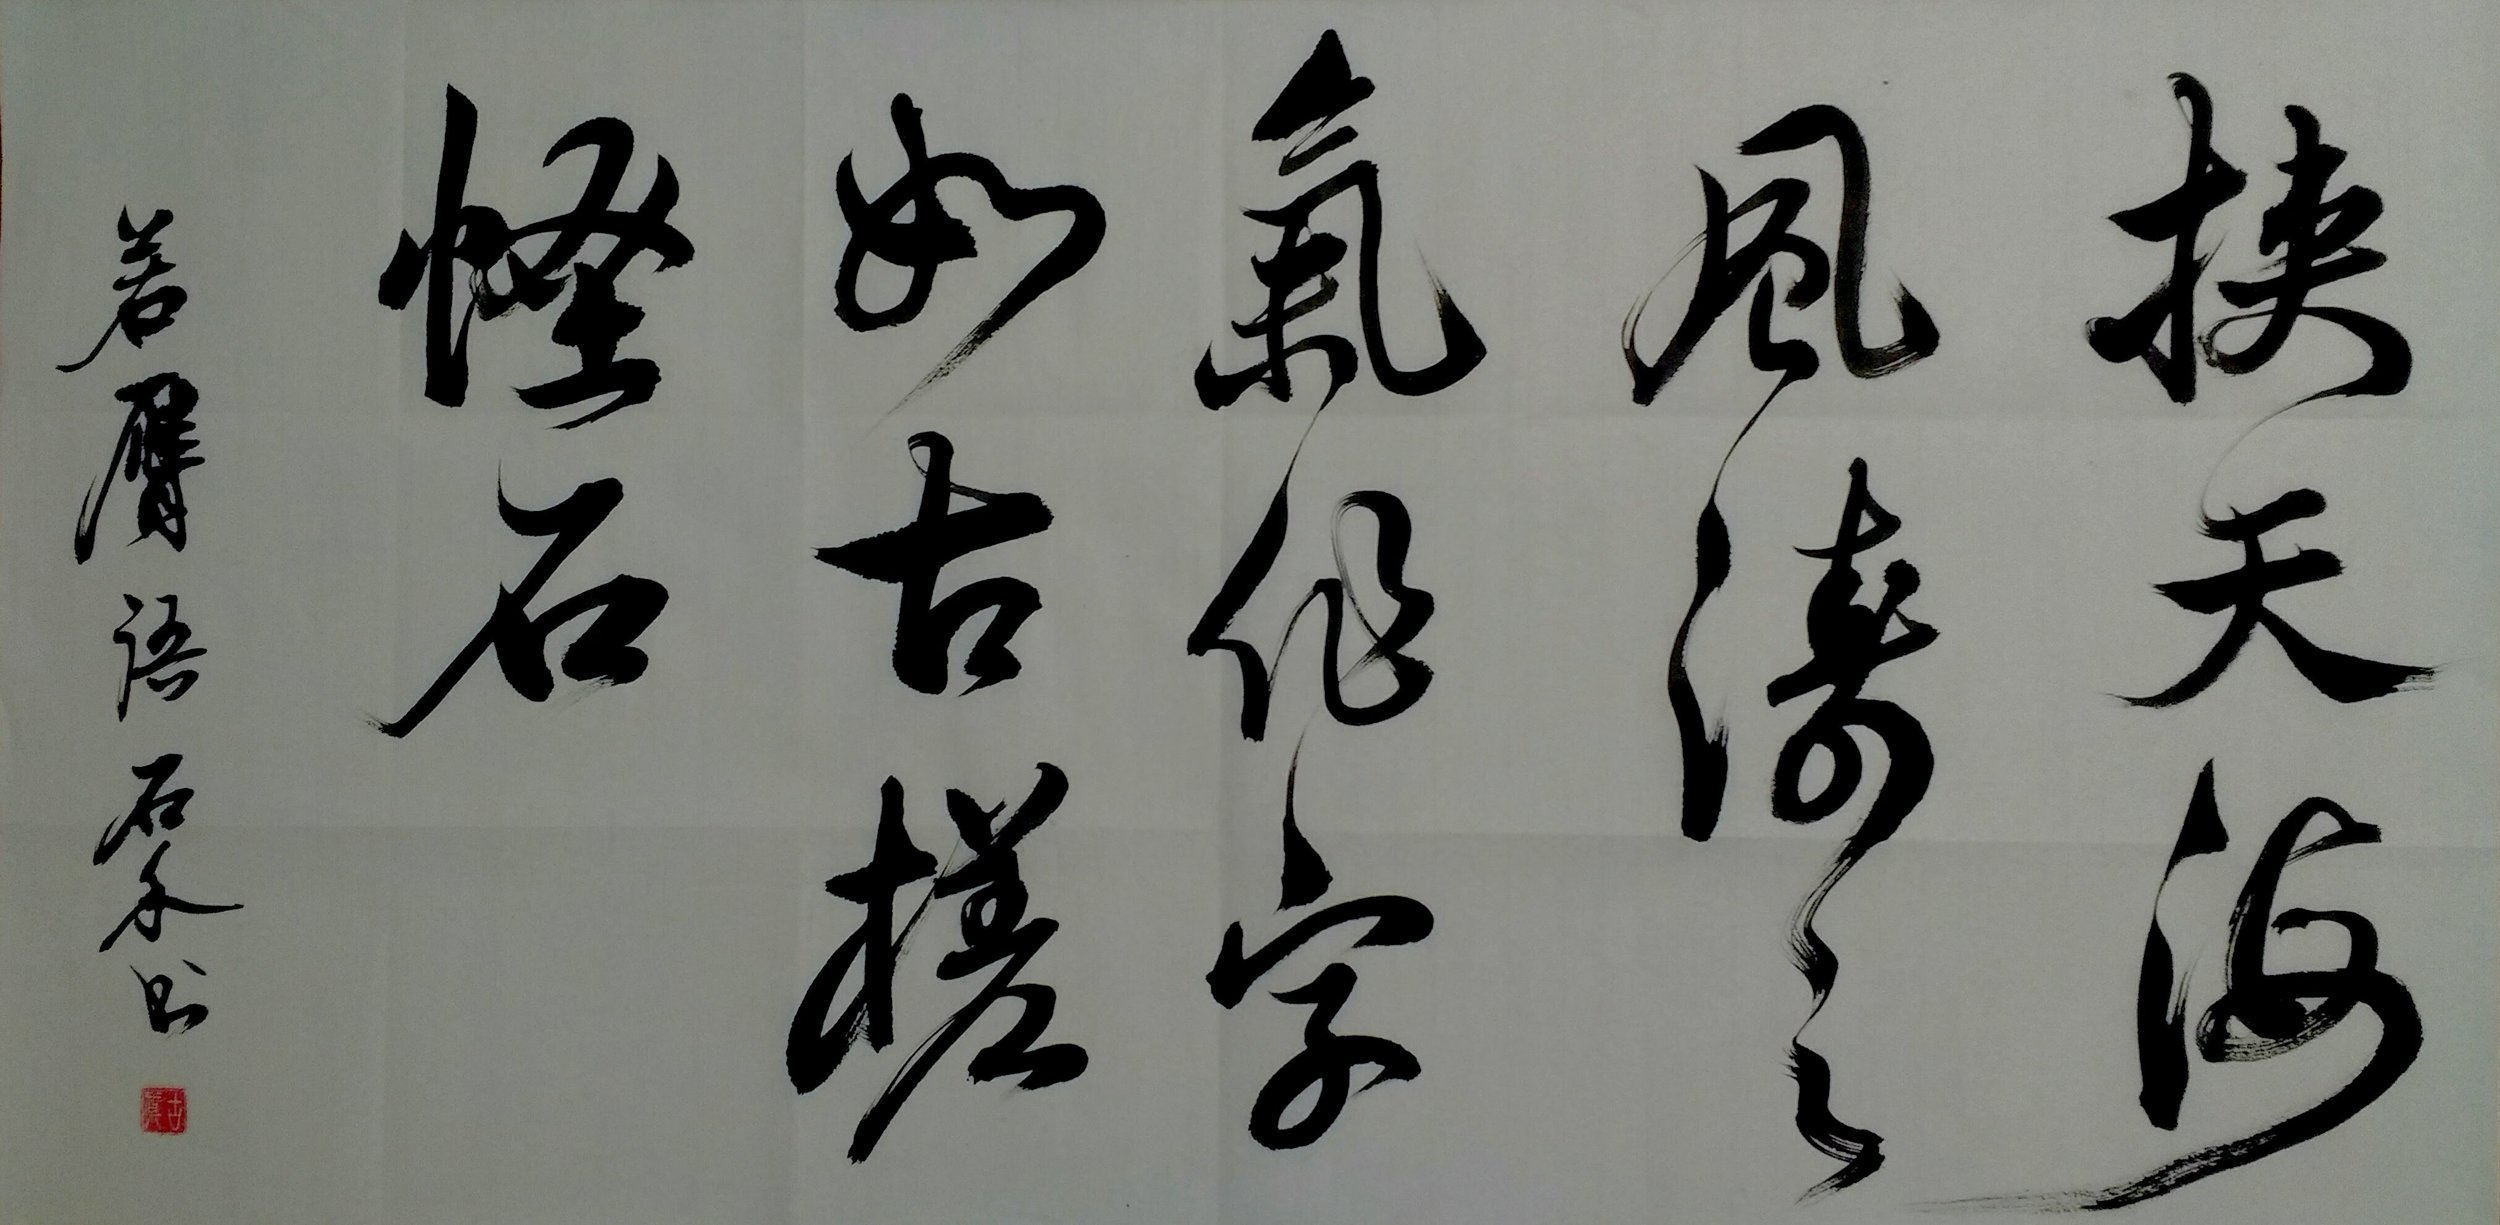 挟天海
風濤之
氣作字
如古槎
怪石
若膺語 石永书